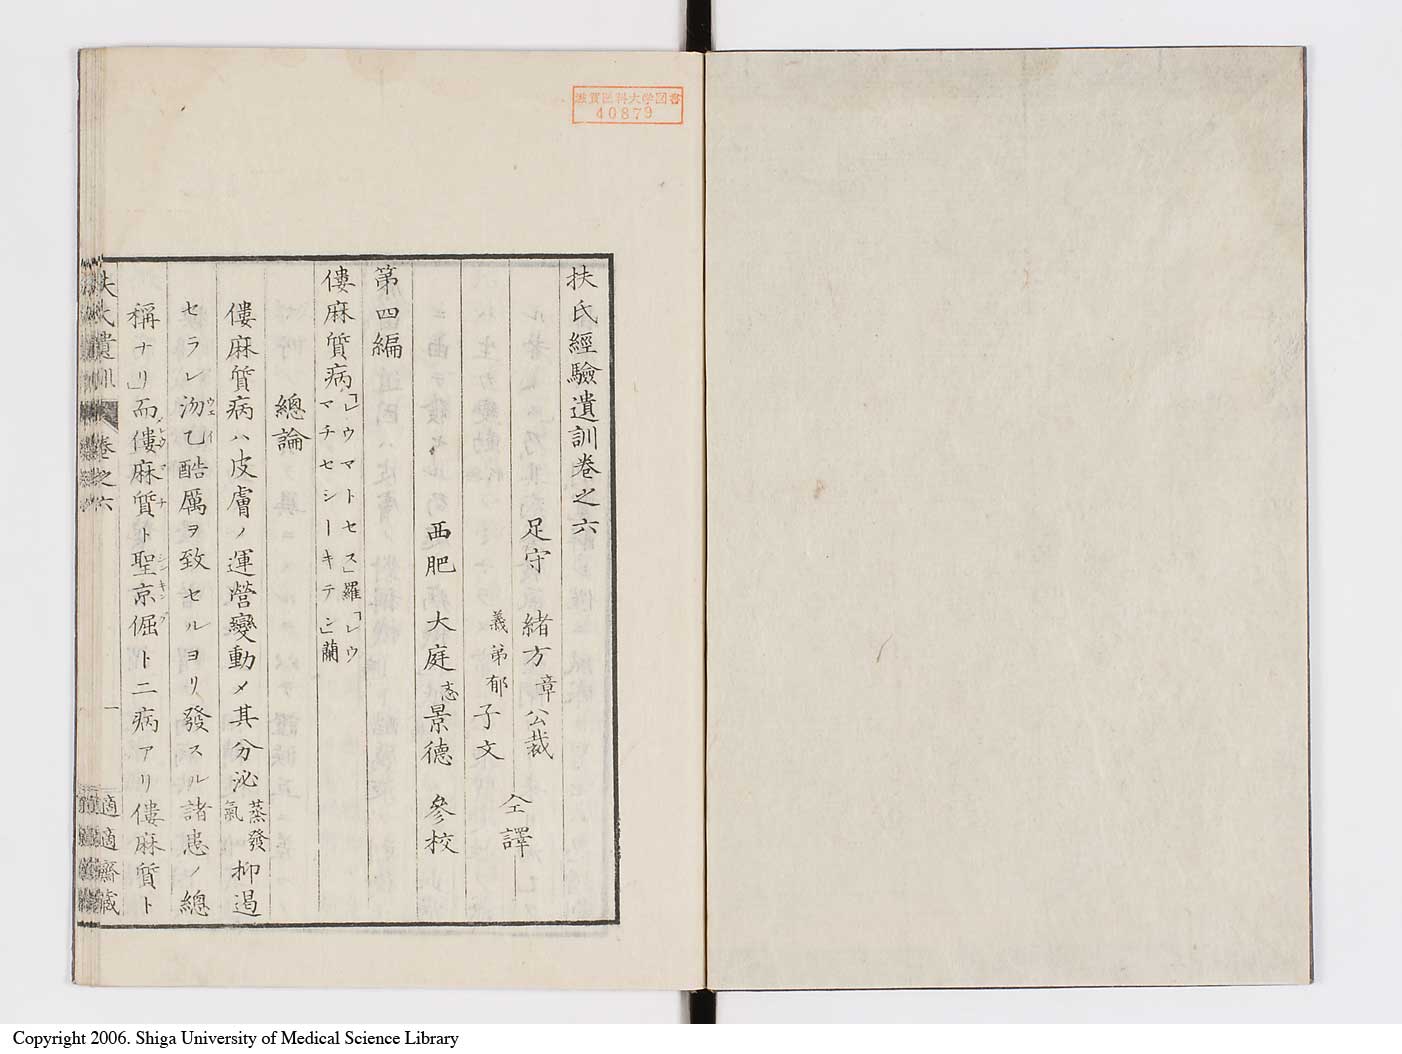 滋賀医科大学図書
40879
扶氏經驗遺訓卷之六
足守 緒方章公裁
義弟郁子文 仝譯
西肥 大庭忞景德 參校
第四編
僂麻質病「レウマトセス」羅「レウマチセシーキテン」蘭
總論
僂麻質病ハ皮膚ノ運營變動メ其分泌蒸發氣抑遏
セラレ沕乙酷厲ヲ致セルヨリ發スル諸患ノ總
稱ナリ」而僂麻質ト聖京倔ト二病アリ僂麻質ト
扶氏遺訓 卷之六 一 適適齋藏
Copyright 2006. Shiga University of Medical Science Library